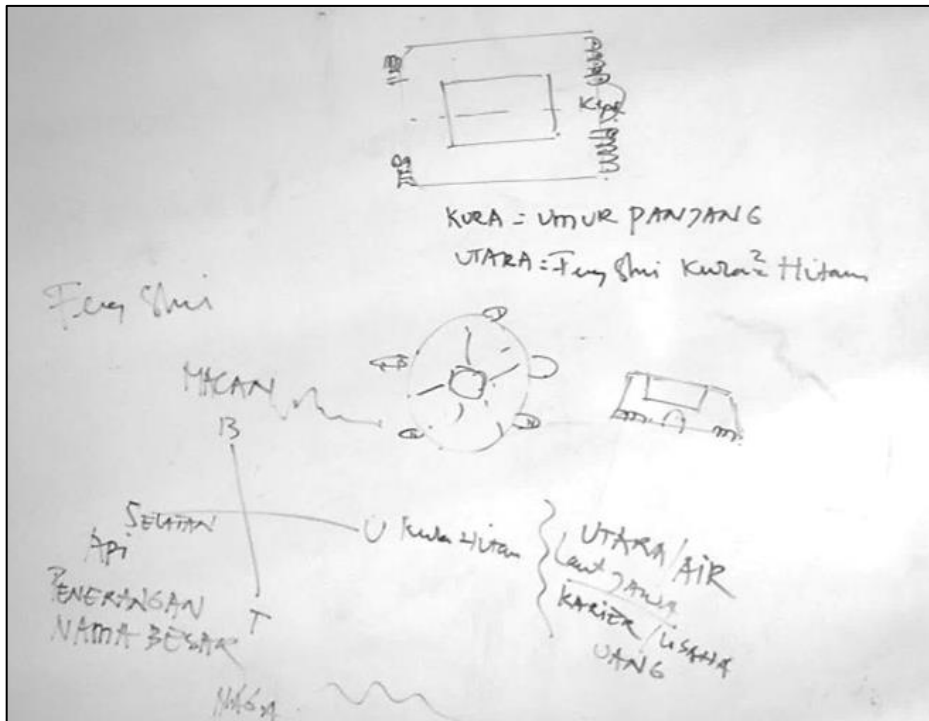 KURA = UMUR PANJANG
UTARA = Feng Shui Kura² Hitam
Feng Shui
MACAN
B
SELATAN
U Kura Hitam
Api
PENERANGAN
NAMA BESAR
T
NAGA
UTARA/AIR
Laut JAWA
KARIER/USAHA
UANG